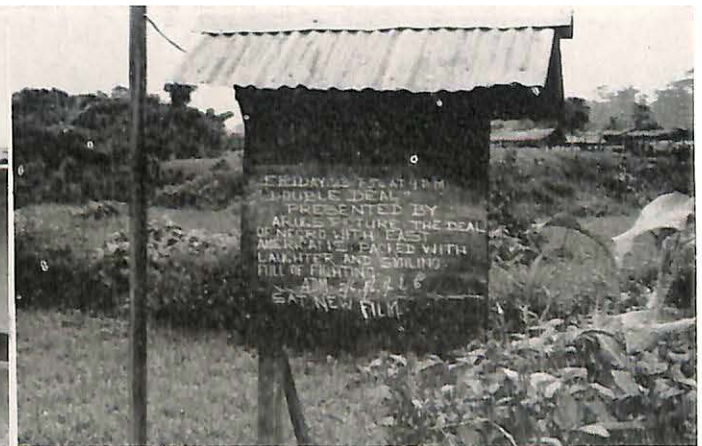 FRIDAY 22 AT 9 P.M
DOUBLE DEAL
PRESENTED BY
PICTURE THE DEAL
OF NEGRO WITH EAST
AMERICA IS PACKED WITH
LAUGHTER AND SMILING
FULL OF FIGHTING
ADM
SAT NEW FILM